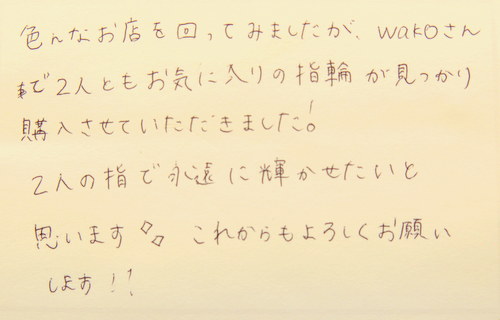 色んなお店を回ってみましたが、wakoさん
で2人ともお気に入りの指輪が見つかり
購入させていただきました!
2人の指で永遠に輝かせたいと
思います◇◇ これからもよろしくお願い
します!!